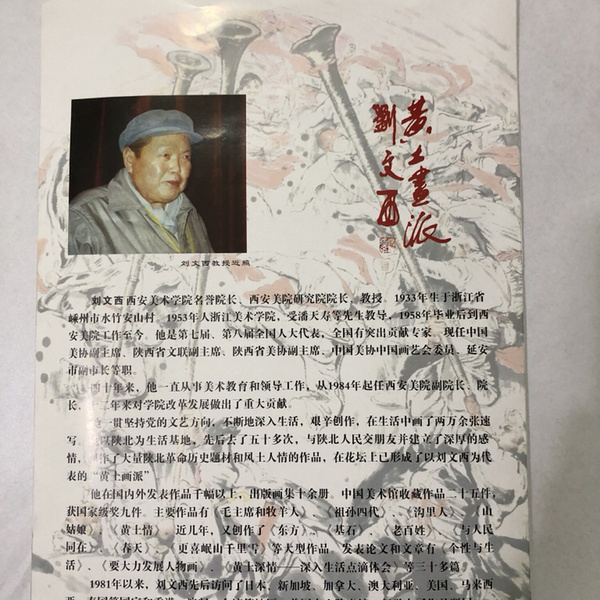 黄土画派
劉文西
刘文西教授近照
刘文西 西安美术学院名誉院长、西安美院研究院院长、教授。1933年生于浙江省
嵊州市水竹安山村。1953年入浙江美术学院，受潘天寿等先生教导，1958年毕业后到西
安美院工作至今。他是第七届、第八届全国人大代表，全国有突出贡献专家。现任中国
美协副主席、陕西省文联副主席、陕西省美协副主席、中国美协中国画艺会委员、延安
市副市长等职。
四十年来，他一直从事美术教育和领导工作，从1984年起任西安美院副院长、院
长、二年来对学院改革发展做出了重大贡献。
一贯坚持党的文艺方向，不断地深入生活，艰辛创作，在生活中画了两万余张速
写。以陕北为生活基地，先后去了五十多次，与陕北人民交朋友并建立了深厚的感
情，作了大量陕北革命历史题材和风土人情的作品，在花坛上已形成了以刘文西为代
表的“黄土画派”
他在国内外发表作品千幅以上，出版画集十余册。中国美术馆收藏作品二十五件，
获国家级奖九件。主要作品有《毛主席和牧羊人》、《祖孙四代》、《沟里人》、《山
姑娘》、《黄土情》、近几年，又创作了《东方》、《基石》、《老百姓》、《与人民
同在》、《春天》、《更喜岷山千里写》等大型作品。发表论文和文章有《个性与生
活》、《要大力发展人物画》、《黄土深情——深入生活点滴体会》等三十多篇。
1981年以来，刘文西先后访问了日本、新加坡、加拿大、澳大利亚、美国、马来西